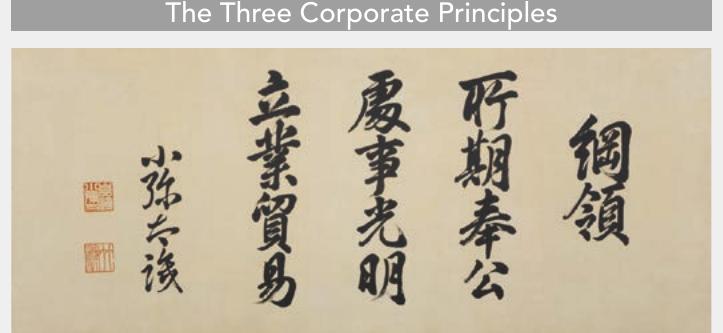 The Three Corporate Principles
綱領
所期奉公
處事光明
立業貿易
小弥太識